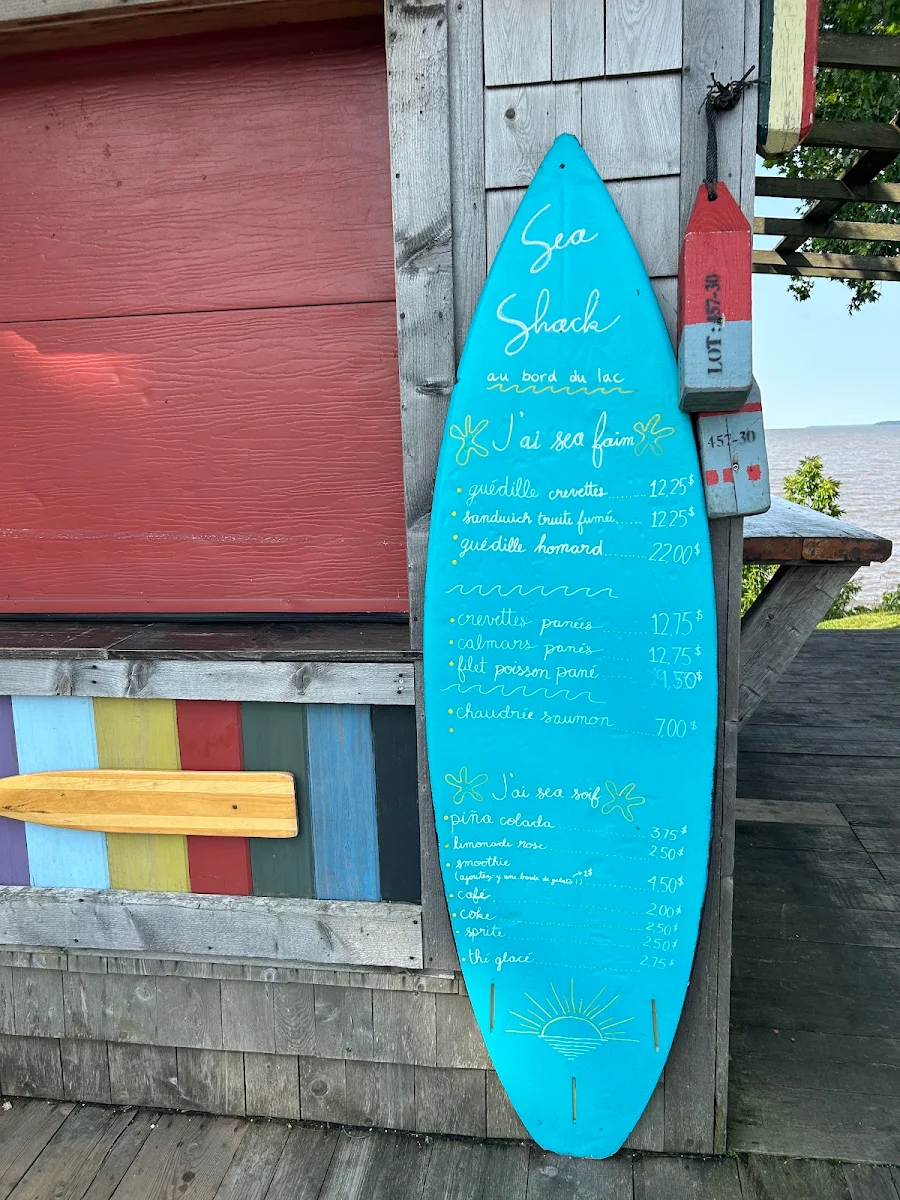 Sea
Shack
au bord du lac
J'ai sea faim
guédille crevettes........ 12,25$
sandwich truite fumée..... 12,25$
guédille homard.......... 22,00$
crevettes panées.......... 12,75$
calmars panés............ 12,75$
filet poisson pané.......... 19,50$
chaudrée saumon 7,00$
J'ai sea soif
piña colada 3,75$
limonade rose 2,50$
smoothie
(ajoutez-y une boule de gelato!) 1$ 4,50$
café 2,00$
coke 2,50$
sprite 2,50$
thé glacé 2,75$
LOT:457-30
457-30